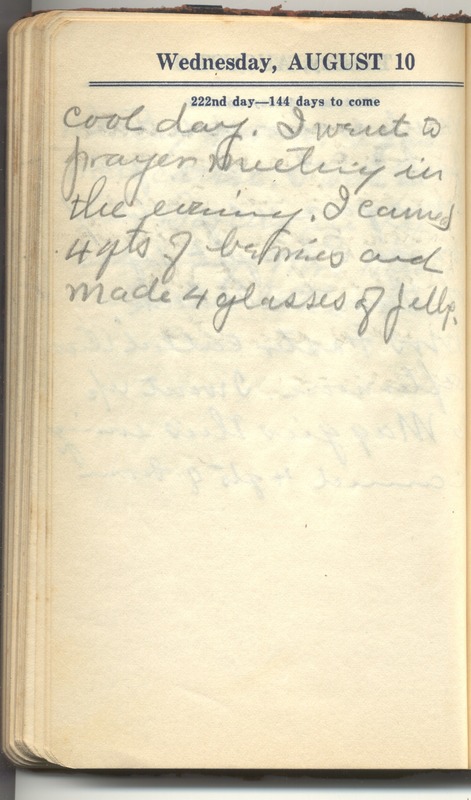 Wednesday, AUGUST 10
222nd day—144 days to come
cool day. I went to
prayer meeting in
the evening. I canned
4 qts of berries and
made 4 glasses of jelly.